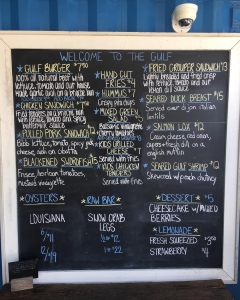 WELCOME TO THE GULF
GULF BURGER $7.50
100% all natural beef with
lettuce, tomato and our house
made garlic aioli on a brioche bun
CHICKEN SANDWICH
Fried chicken on a brioche bun,
with lettuce, tomato
PULLED PORK SANDWICH
Bibb lettuce, tomato, spicy pickle
cheese, aioli on ciabatta
BLACKENED SWORDFISH
Frisee, heirloom tomatoes,
mustard vinaigrette
HAND CUT
FRIES $4
HUMMUS $7
Crispy pita chips
MIXED GREEN
Balsamic vinaigrette
KIDS GRILLED
CHEESE
Served with fries
KIDS CHICKEN
TENDERS
Served with fries
FRIED GROUPER SANDWICH $13
Lightly breaded and fried crisp
with lettuce, tomato and our
lemon aioli sauce
SEARED DUCK BREAST $15
Served over
lentils
SALMON LOX $12
Cream cheese, red onion,
capers + fresh dill on a
english muffin
SEARED GULF SHRIMP
Served w/ peach chutney
OYSTERS
LOUISIANA
6/$11
12/$19
RAW BAR
SNOW CRAB
LEGS
1/2 lb $12
1 lb $22
DESSERT $5
CHEESECAKE w/ MIXED
BERRIES
LEMONADE
FRESH SQUEEZED $3.50
STRAWBERRY $4